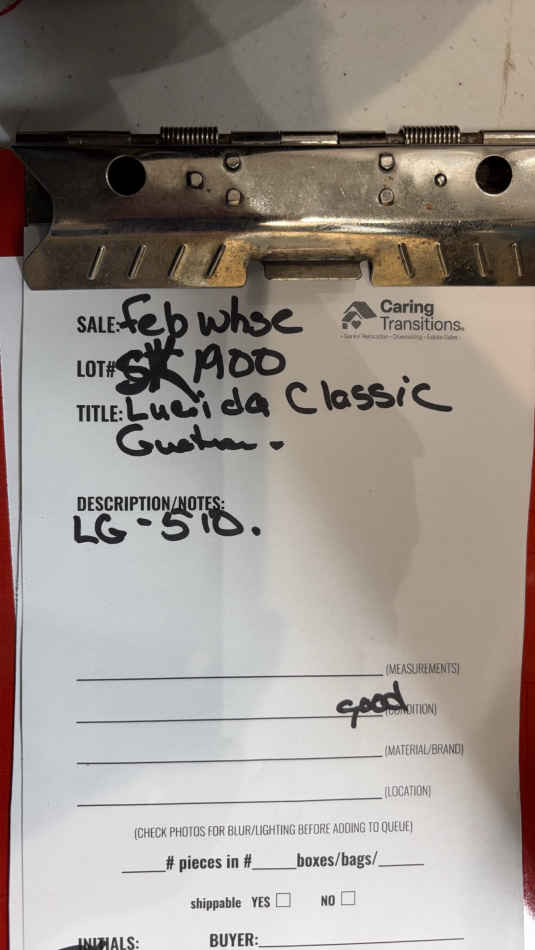 Caring
Transitions.
• Senior Relocation • Downsizing • Estate Sales •
SALE: feb whse
LOT# SK 1900
TITLE: Lucida Classic
Guitar.
DESCRIPTION/NOTES:
LG-510.
(MEASUREMENTS)
good (CONDITION)
(MATERIAL/BRAND)
(LOCATION)
(CHECK PHOTOS FOR BLUR/LIGHTING BEFORE ADDING TO QUEUE)
____# pieces in #_____boxes/bags/_____
shippable YES ☐ NO ☐
INITIALS: BUYER: